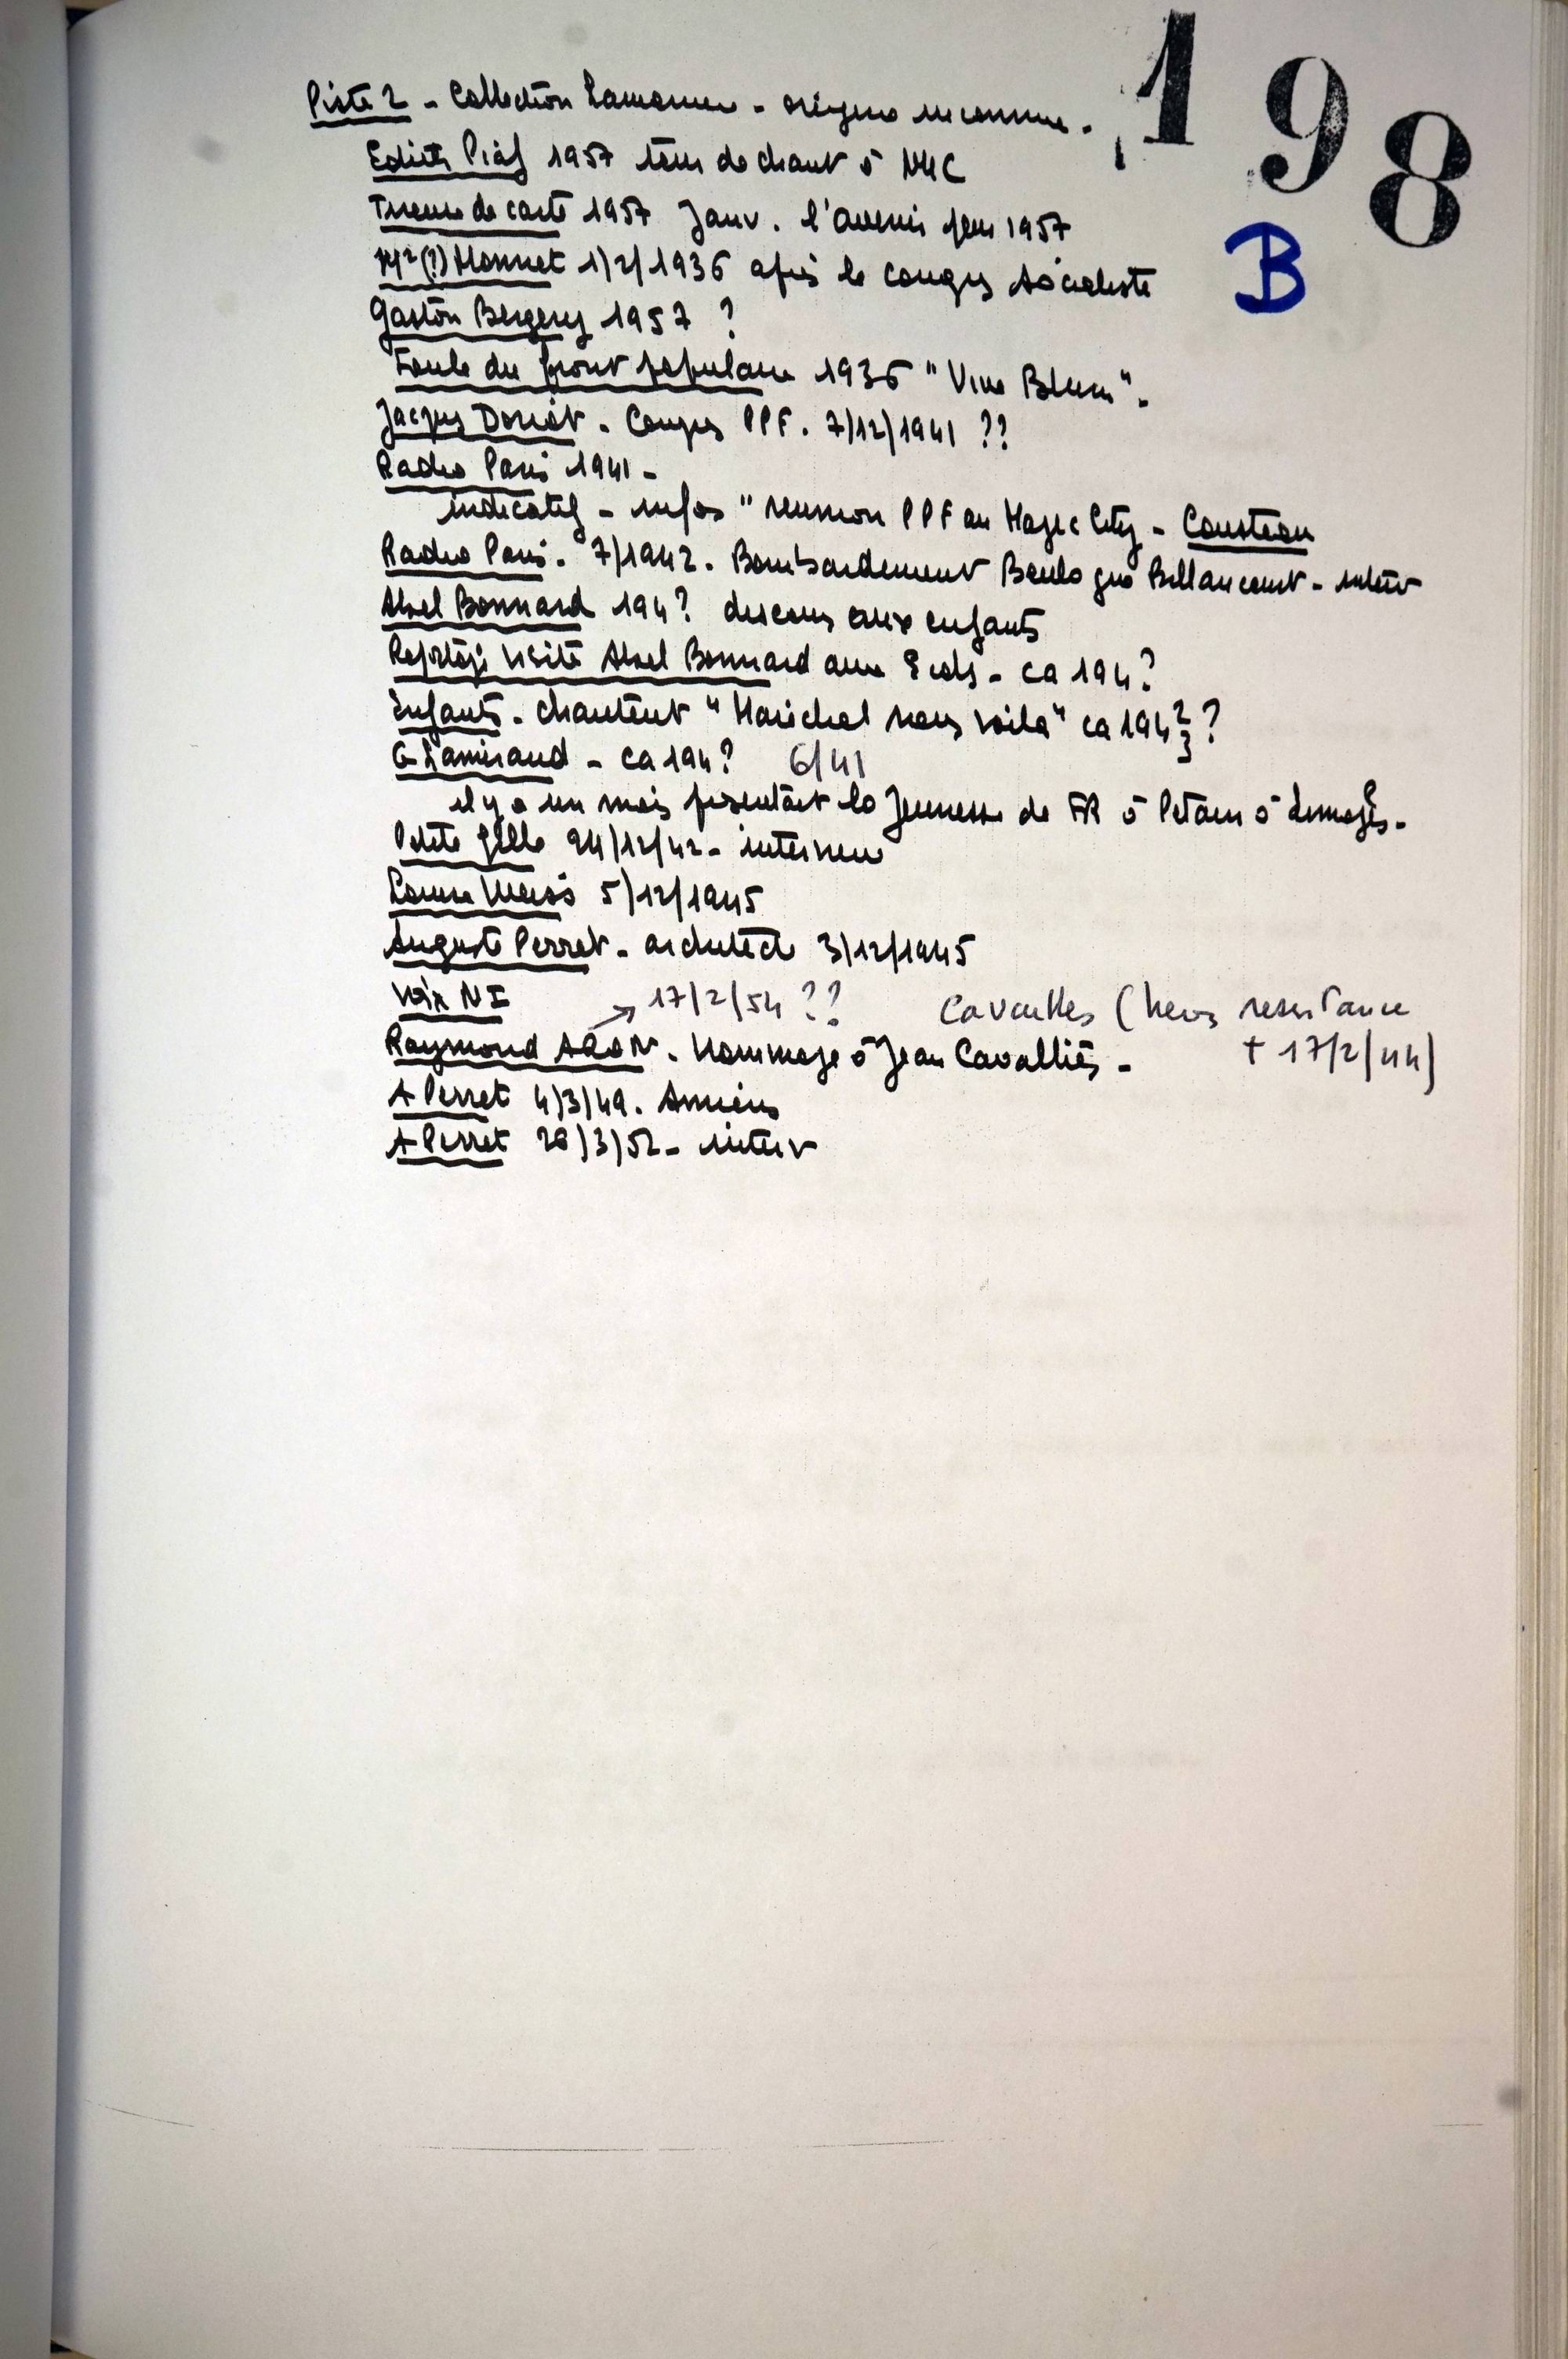 198
B
Piste 2 - Collection - origine inconnue.
Edith Piaf 1957 tour de chant à
Tireuse de carte 1957 Janv. l'avenir pour 1957
(?) Monnet 1/2/1936 après le congrès socialiste
Gaston Bergery 1957 ?
Foule du front populaire 1936 "Vive Blum".
Jacques Doriot. Congrès PPF. 7/12/1941 ??
Radio Paris 1941 -
indicatif - infos "réunion PPF au Magic City - Cousteau
Radio Paris. 7/1942. Bombardement Boulogne Billancourt - interv
Abel Bonnard 194? discours aux enfants
Reportage visite Abel Bonnard aux - ca 194?
Enfants. chantent "Maréchal nous voilà" ca 194 2/3 ?
G Lamirand - ca 194? 6/41
il y a un mois présentait la Jeunesse de FR à Petain à Limoges.
Petite fille 24/12/42 - interview
Louise Weiss 5/12/1945
Auguste Perret - architecte 3/12/1945
Voix NI
→ 17/2/54 ?? Cavailles (heros resistance
+ 17/2/44)
Raymond ARON. Hommage à Jean Cavalliès -
A Perret 4/3/49. Amiens
A Perret 28/3/52 - interv